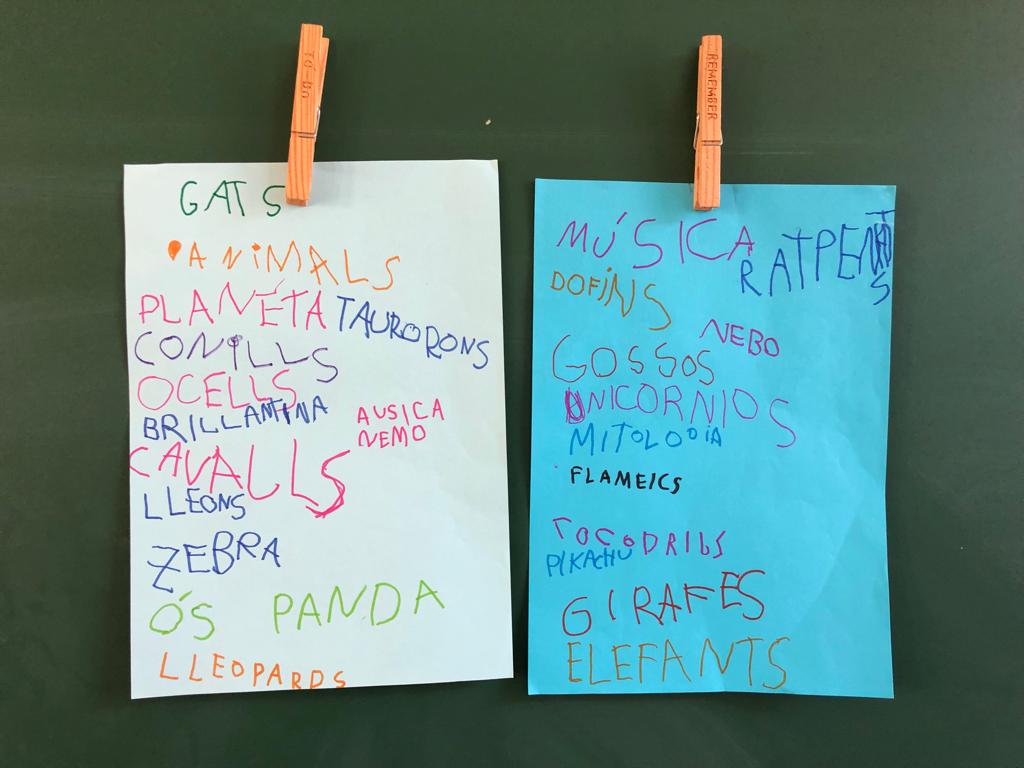 TO-DO
GATS
ANIMALS
PLANÉTA
TAURORONS
CONILLS
OCELLS
BRILLANTINA
AUSICA
NEMO
CAVALLS
LLEONS
ZEBRA
ÓS PANDA
LLEOPARDS
REMEMBER
MÚSICA
RATPENATS
DOFINS
NEBO
GOSSOS
UNICORNIOS
MITOLODIA
FLAMEICS
COCODRILS
PIKACHU
GIRAFES
ELEFANTS